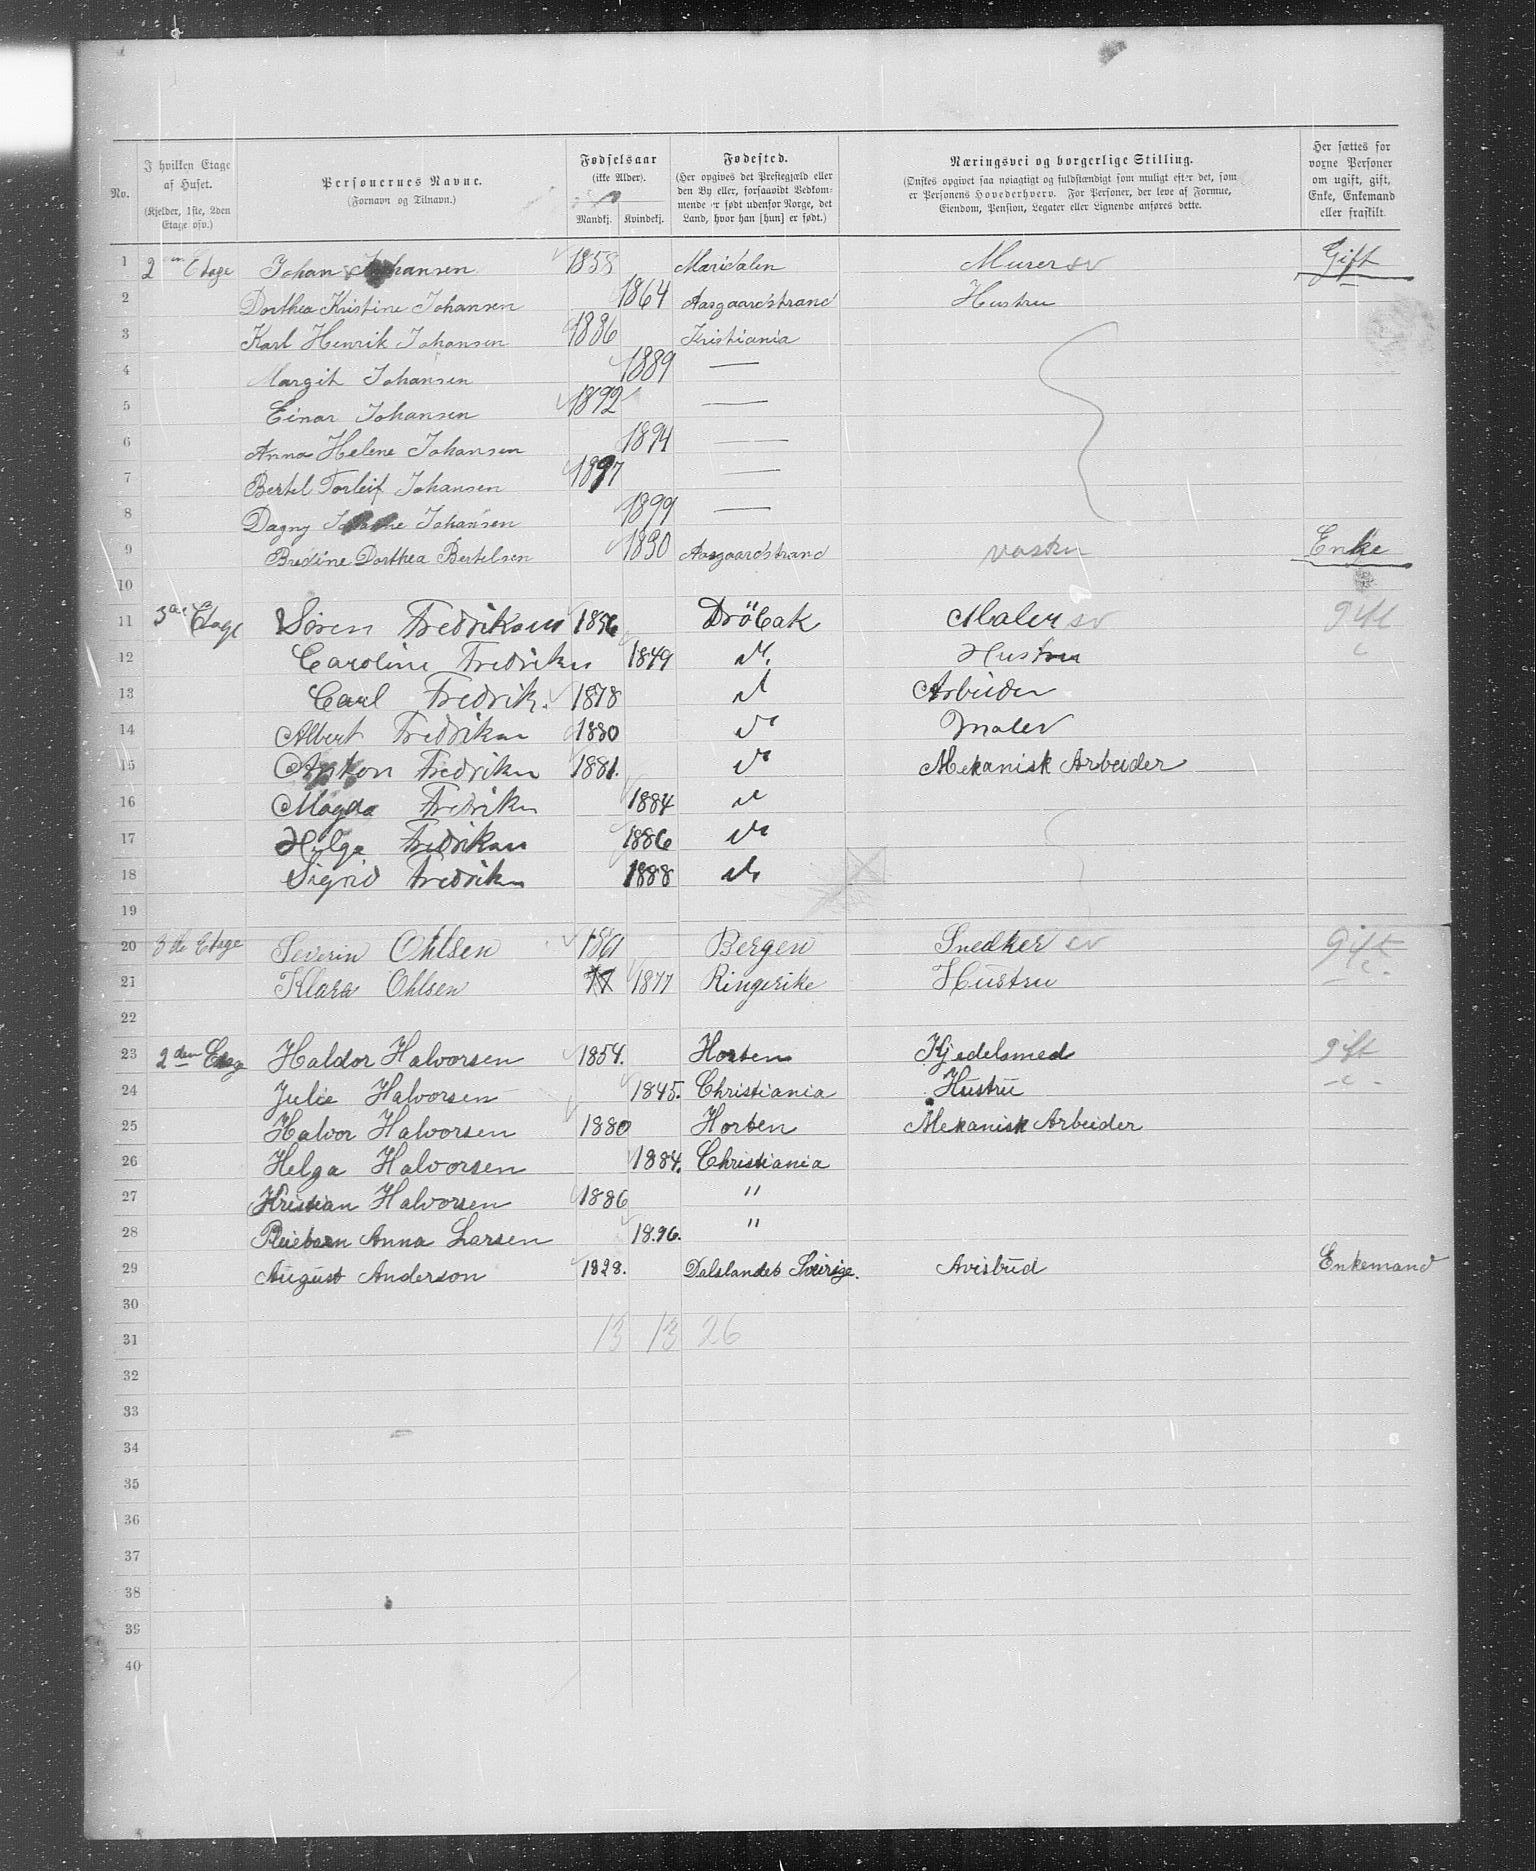 No.
I hvilken Etage af Huset.
(Kjelder, 1ste, 2den Etage osv.)
Personernes Navne.
(Fornavn og Tilnavn.)
Fødselsaar
(ikke Alder).
Mandkj. Kvindekj.
Fødested.
(Her opgives det Prestegjæld eller
den By eller, forsaavidt Vedkom-
mende er født udenfor Norge, det
Land, hvor han [hun] er født.)
Næringsvei og borgerlige Stilling.
(Ønskes opgivet saa nøiagtigt og fuldstændigt som muligt efter det, som
er Personens Hovederhverv. For Personer, der leve af Formue,
Eiendom, Pension, Legater eller Lignende anføres dette.
Her sættes for
voxne Personer
om ugift, gift,
Enke, Enkemand
eller fraskilt.
1 2 Etage Johan Johansen 1858 Maridalen Murer sv Gift
2 Dorthea Kristine Johansen 1864 Aasgaardstrand Hustru
3 Karl Henrik Johansen 1886 Kristiania
4 Margit Johansen 1889 —
5 Einar Johansen 1892 —
6 Anna Helene Johansen 1894 —
7 Bertel Torleif Johansen 1897 —
8 Dagny Johansen 1899 —
9 Bredine Dorthea Bertelsen 1830 Aasgaardstrand vasker Enke
10
11 3 Etage Sören Fredriksen 1856 Dröbak Maler sv gift
12 Caroline Fredriksen 1849 Hustru
13 Carl Fredrik. 1878 Arbeider
14 Albert Fredriksen 1880 Maler
15 Anton Fredriksen 1881. Mekanisk Arbeider
16 Magda Fredriksen 1884
17 Helga Fredriksen 1886
18 Sigrid Fredriksen 1888
19
20 3die Etage Severin Ohlsen 1861 Bergen Snedker sv gift
21 Klara Ohlsen 1877 Ringerike Hustru
22
23 2den Etage Haldor Halvorsen 1854. Horten Kjedelsmed gift
24 Julie Halvorsen 1845. Christiania Hustru
25 Halvor Halvorsen 1880 Horten Mekanisk Arbeider
26 Helga Halvorsen 1884. Christiania
27 Kristian Halvorsen 1886 "
28 Pleiebarn Anna Larsen 1896. "
29 August Anderson 1828. Dalslandet Sverige. Avisbud Enkemand
30
31 13 13 26
32
33
34
35
36
37
38
39
40